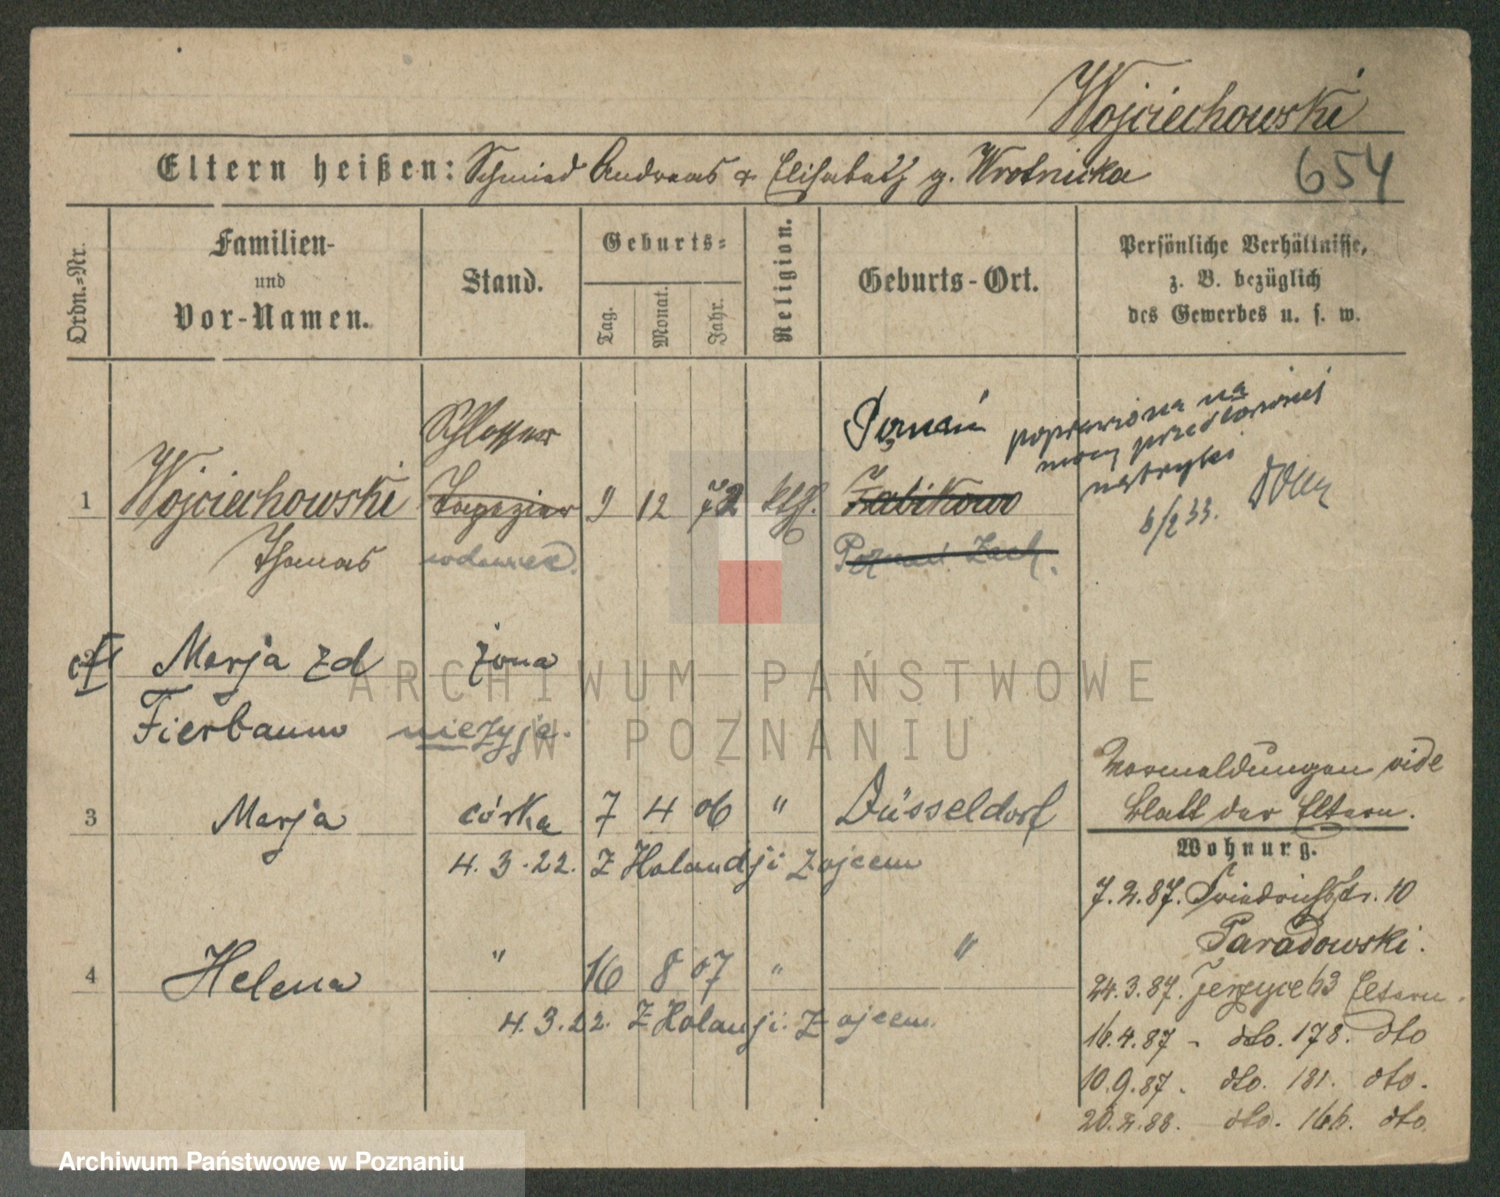 Wojciechowski
Eltern heißen: Schmied Andreas & Elisabeth g. Wrotnicka
654
Ordn.=Nr.
Familien-
und
Vor-Namen.
Stand.
Geburts=
Tag.
Monat.
Jahr.
Religion.
Geburts-Ort.
Persönliche Verhältnisse,
z. B. bezüglich
des Gewerbes u. s. w.
Schlosser
Poznań
poprawiono na
mocy przedłożonej
metryki
6/2 33.
1 Wojciechowski Tapezier 9 12 72 kth. Żabikowo
Thomas wdowiec. Poznań Zach.
2 Marja zd żona
Fierbaum nieżyje.
3 Marja córka 7 4 06 " Düsseldorf
4.3.22. Z Holandji z ojcem
4 Helena " 16 8 07 " "
4.3.22. Z Holandji z ojcem.
Vormeldungen vide
Blatt der Eltern.
Wohnung.
7.2.87. Friedrichstr. 10
Paradowski.
24.3.87. Jerzyce 63 Eltern.
16.4.87 - dto. 178. dto
10.9.87. dto. 181. dto.
dto. 166. dto.
ARCHIWUM PAŃSTWOWE
W POZNANIU
Archiwum Państwowe w Poznaniu